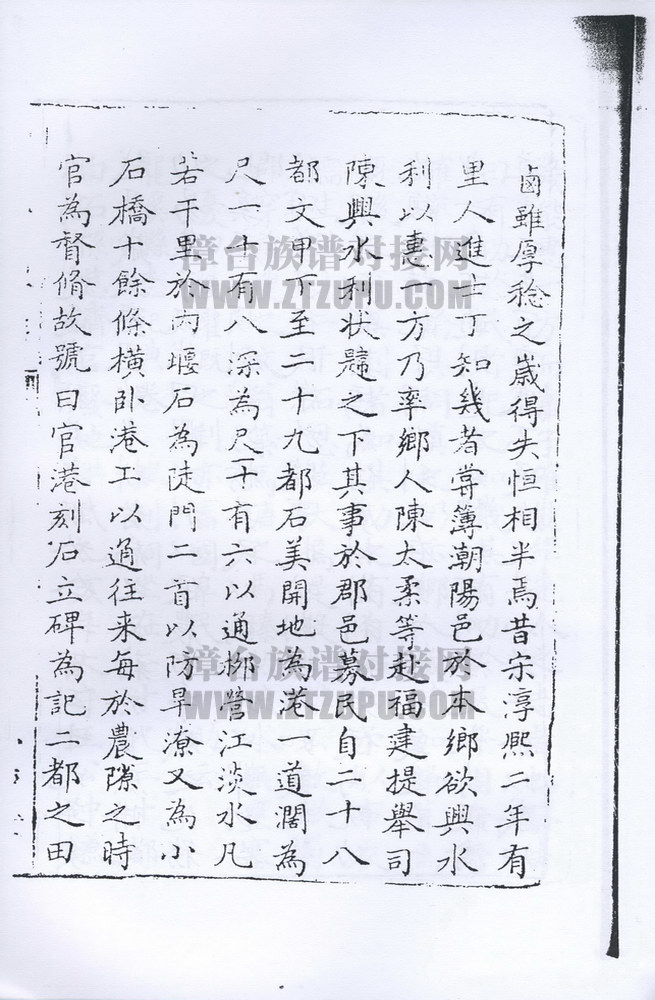 鹵雖厚稔之歲得失恒相半焉昔宋淳熙二年有
里人進士丁知幾者嘗簿朝陽邑於本鄉欲興水
利以惠一方乃率鄉人陳太柔等赴福建提舉司
陳興水利狀韙之下其事於郡邑募民自二十八
都文甲下至二十九都石美開地為港一道濶為
尺一十有八深為尺十有六以通栁營江淡水凡
若干里於內堰石為陡門二首以防旱潦又為小
石橋十餘條橫卧港工以通往来每於農隙之時
官為督脩故號曰官港刻石立碑為記二都之田
漳台族谱对接网
WWW.ZTZUPU.COM
漳台族谱对接网
WWW.ZTZUPU.COM